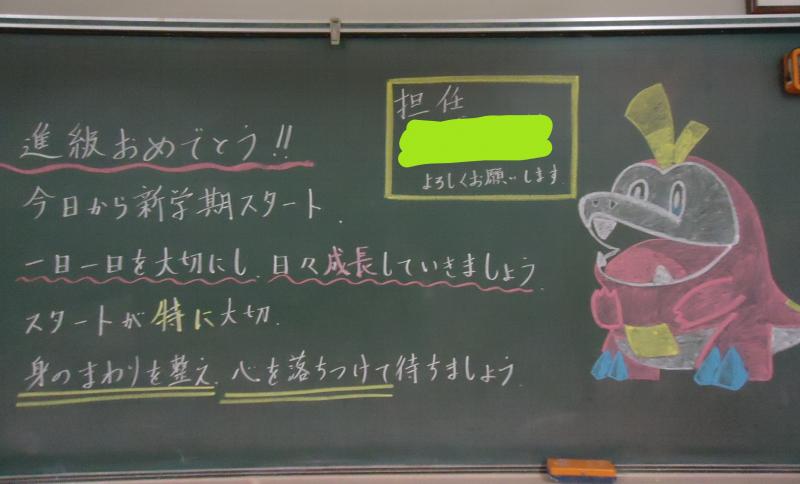 進級おめでとう!!
今日から新学期スタート.
一日一日を大切にし,日々成長していきましょう.
スタートが特に大切.
身のまわりを整え,心を落ちつけて待ちましょう.
担任
よろしくお願いします.